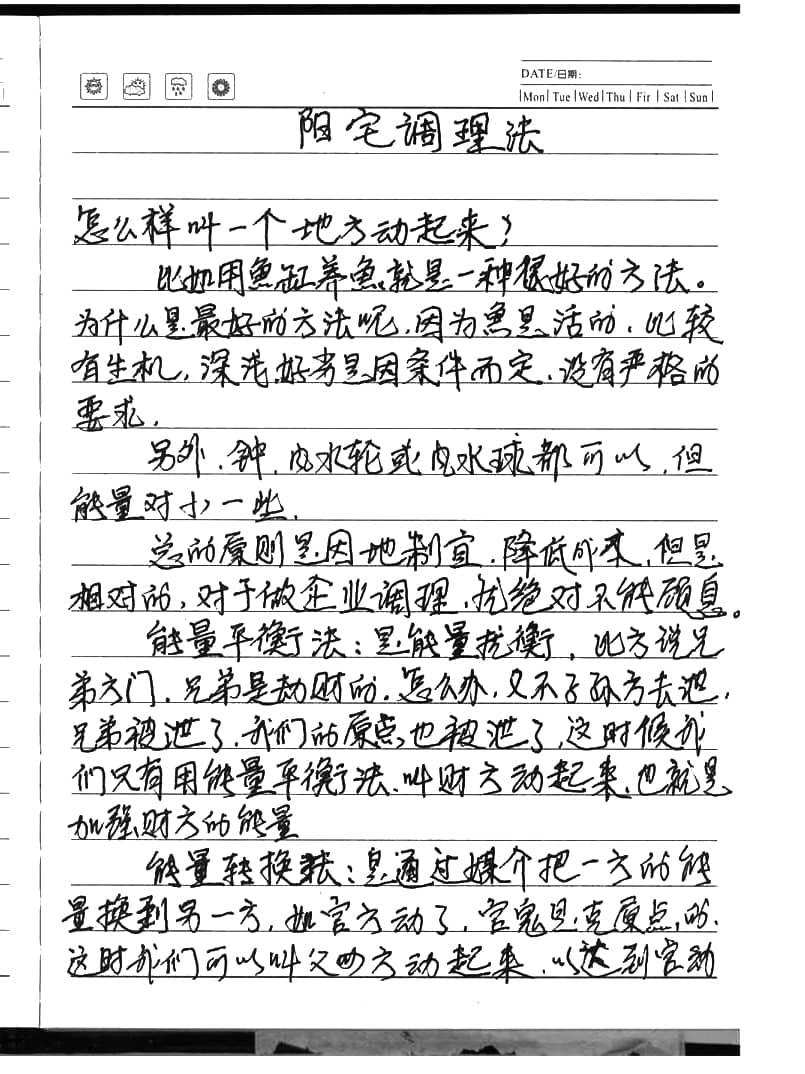 DATE/日期:
Mon Tue Wed Thu Fir Sat Sun
阳宅调理法
怎么样叫一个地方动起来?
比如用鱼缸养鱼,就是一种很好的方法。
为什么是最好的方法呢,因为鱼是活的,比较
有生机,深浅好劣是因条件而定,没有严格的
要求,
另外,钟,内水轮或内水球都可以,但
能量对小一些,
总的原则是因地制宜,降低成本,但是
相对的,对于做企业调理,扰绝对不能顾息。
能量平衡法:是能量扰衡,比方说兄
弟方门,兄弟是劫财的,怎么办,又不子孙方去泄,
兄弟被泄了,我们的原点,也被泄了,这时候我
们只有用能量平衡法,叫财方动起来,也就是
加强财方的能量
能量转换法:是通过媒介把一方的能
量换到另一方,如官方动了,官鬼是克原点,的,
这时我们可以叫父母方动起来,以达到官动